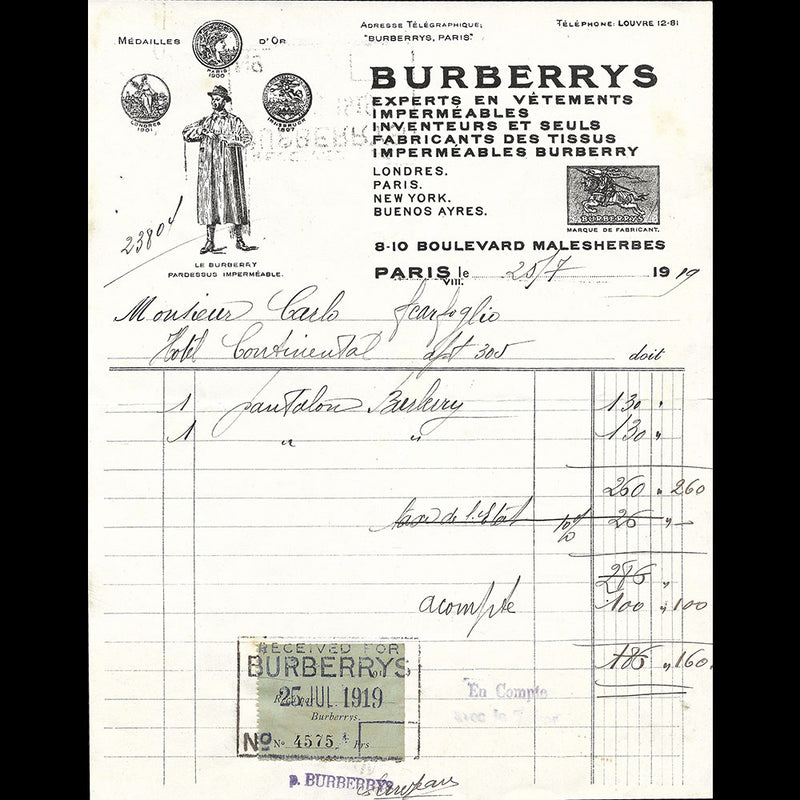 MÉDAILLES D'OR
PARIS
1900
LONDRES
1901
INNSBRUCK
1897
ADRESSE TÉLÉGRAPHIQUE:
"BURBERRYS, PARIS"
TÉLÉPHONE: LOUVRE 12-81
BURBERRYS
EXPERTS EN VÊTEMENTS
IMPERMÉABLES
INVENTEURS ET SEULS
FABRICANTS DES TISSUS
IMPERMÉABLES BURBERRY
LONDRES.
PARIS.
NEW YORK.
BUENOS AYRES.
BURBERRYS
MARQUE DE FABRICANT.
LE BURBERRY
PARDESSUS IMPERMÉABLE.
8-10 BOULEVARD MALESHERBES
PARIS VIII. le 25/7 1919
Monsieur Carlo Scarfoglio
Hotel Continental apt 305 doit
1 pantalon Burberry 130 "
1 " " 130 "
260 " 260
taxe de l'Etat 10% 26 " —
286 "
acompte 100 " 100
186 " 160.
RECEIVED FOR
BURBERRYS
25 JUL 1919
Burberrys.
No No 4575 Frs
En Compte
p. BURBERRYS